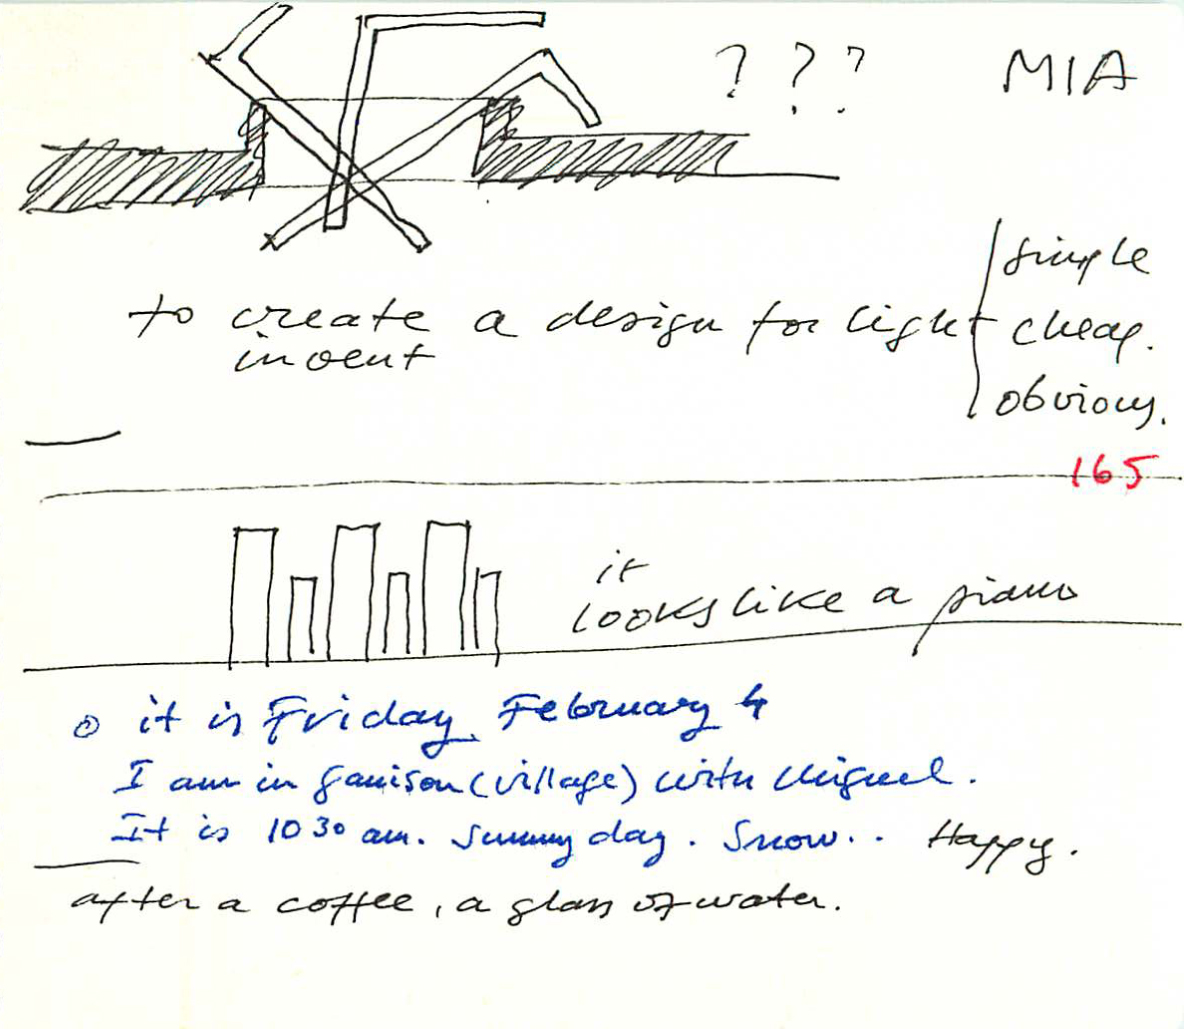 ? ? ? MIA
simple
to create a design for light cheap.
invent
obvious.
165
it
looks like a piano
it is Friday, February 4
I am in Garrison (village) with Miguel.
It is 10 30 am. Sunny day. Snow.. Happy.
after a coffee, a glass of water.